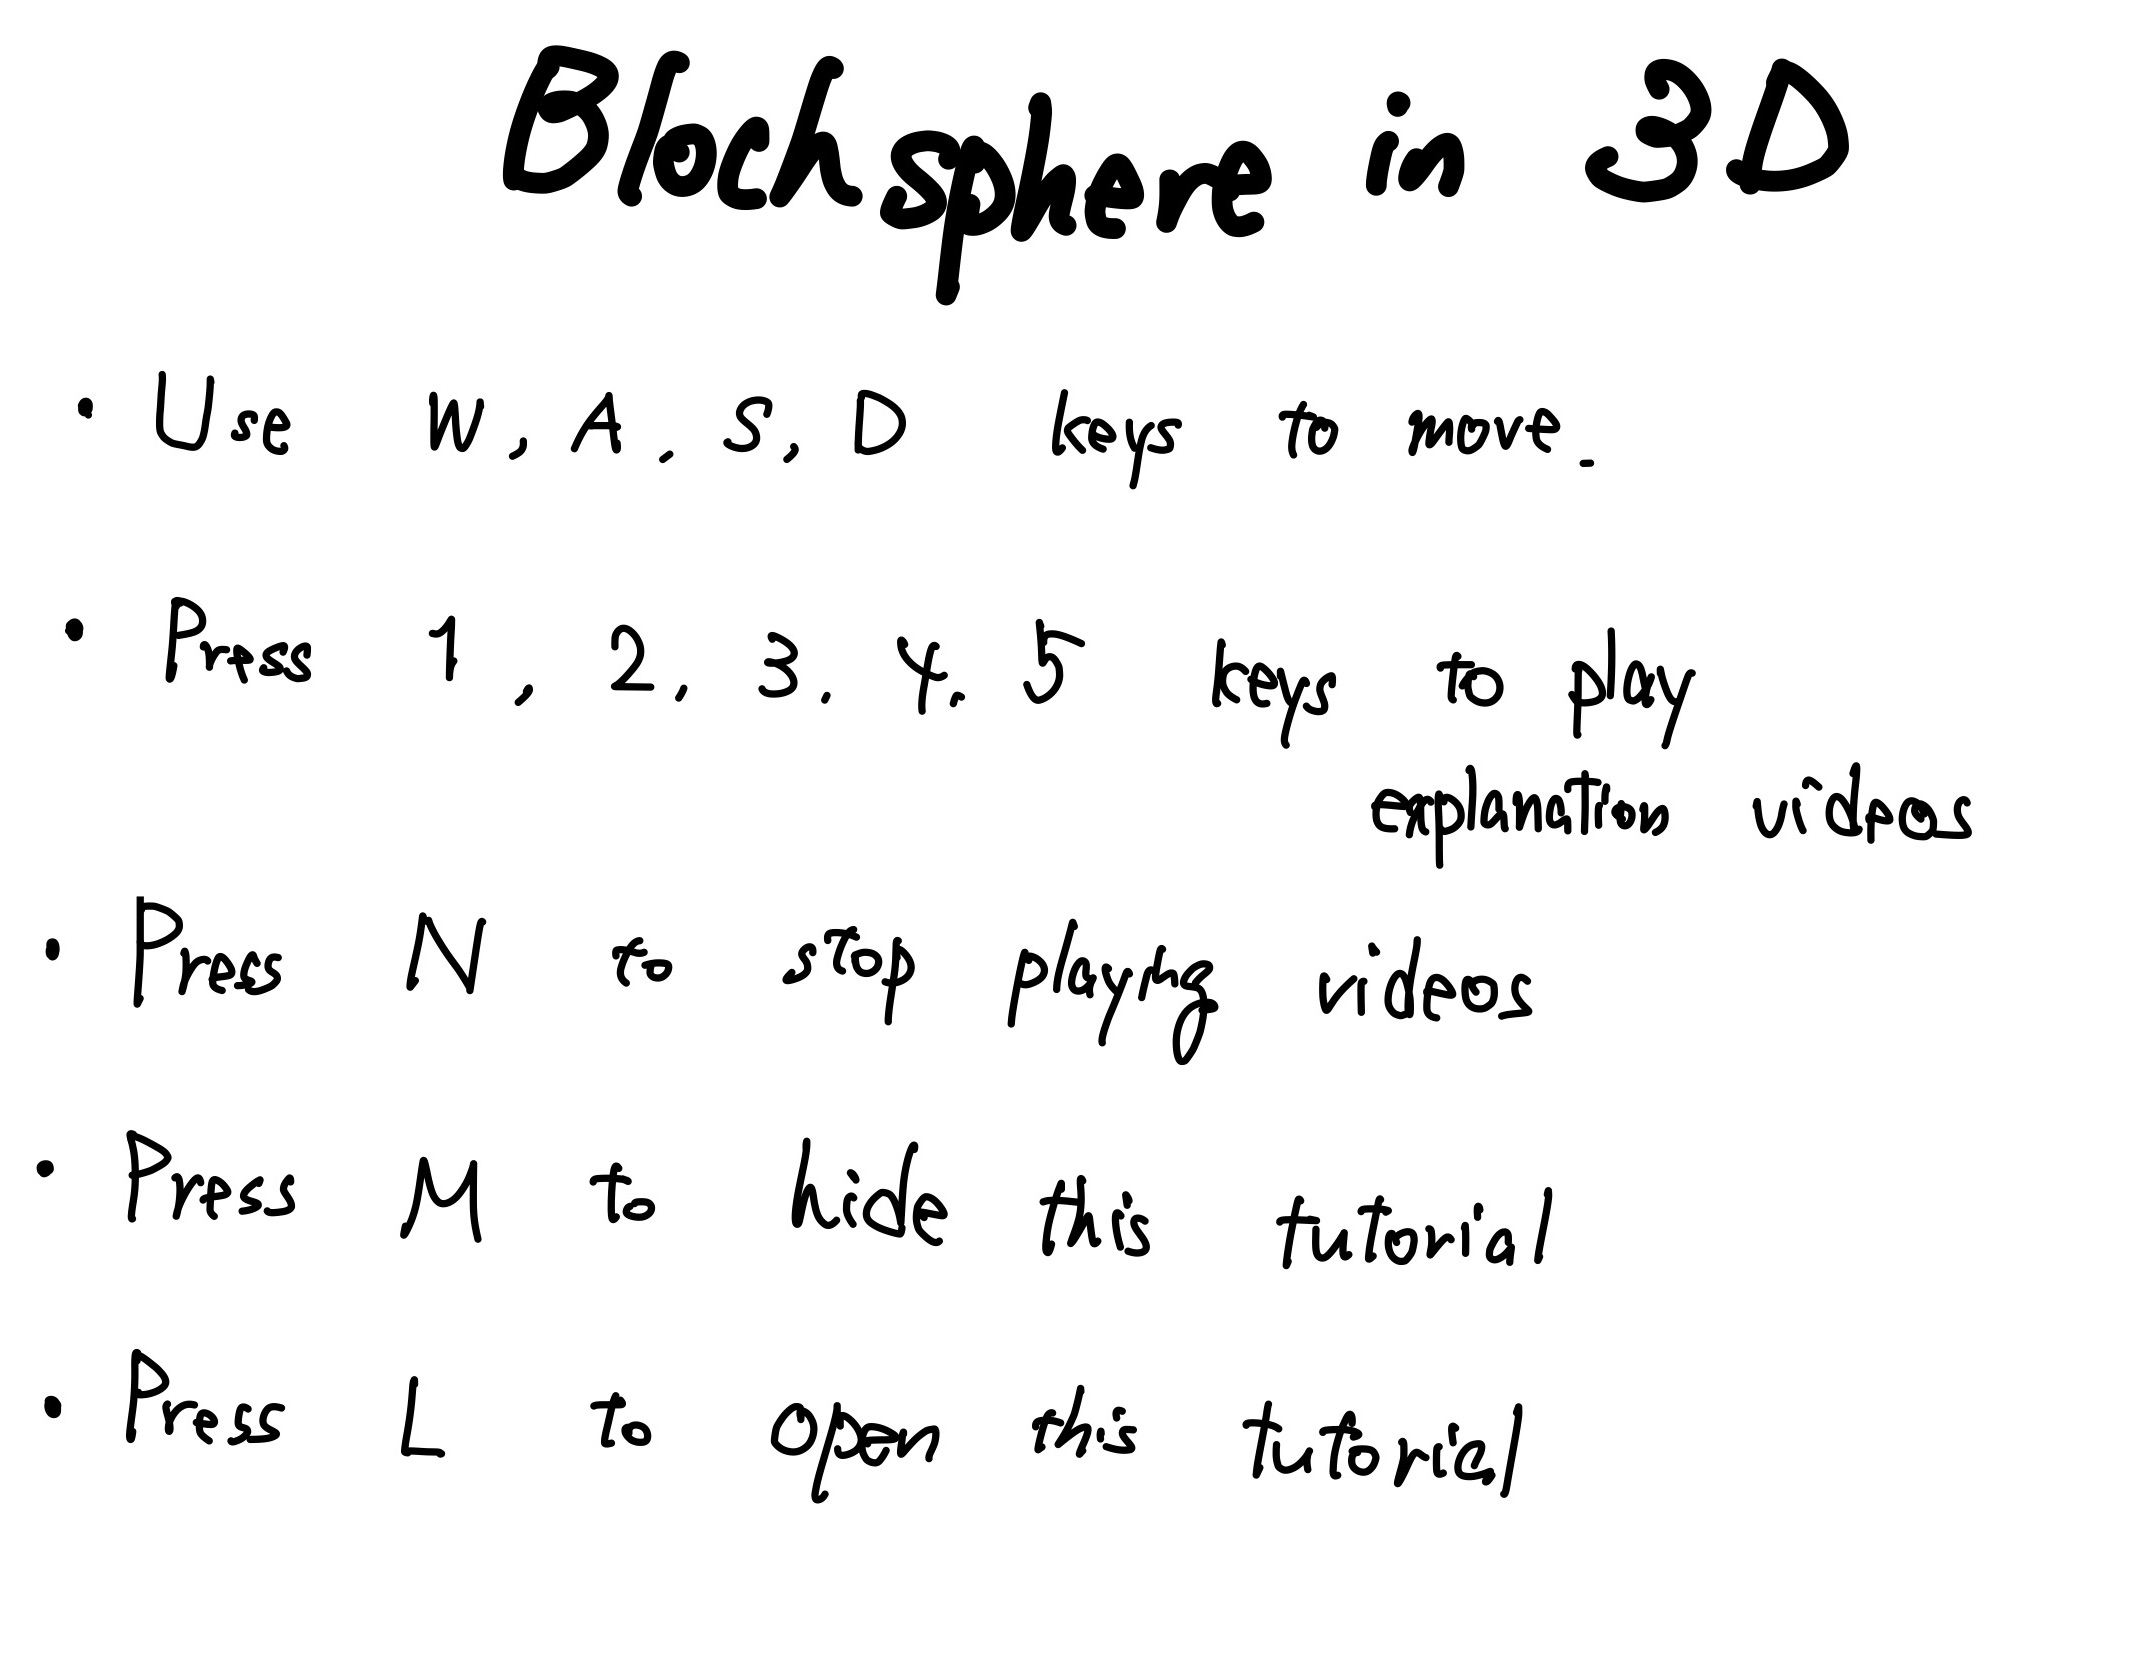 Bloch sphere in 3D
• Use W, A, S, D keys to move.
• Press 1, 2, 3, 4, 5 keys to play
explanation videos
• Press N to stop playing videos
• Press M to hide this tutorial
• Press L to open this tutorial